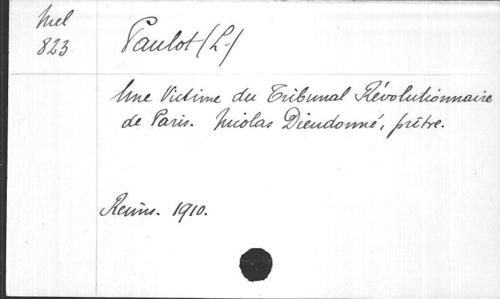 Mel
823
Paulot (L.)
Une Victime du Tribunal Révolutionnaire
de Paris. Nicolas Dieudonné, prêtre.
Reims. 1910.